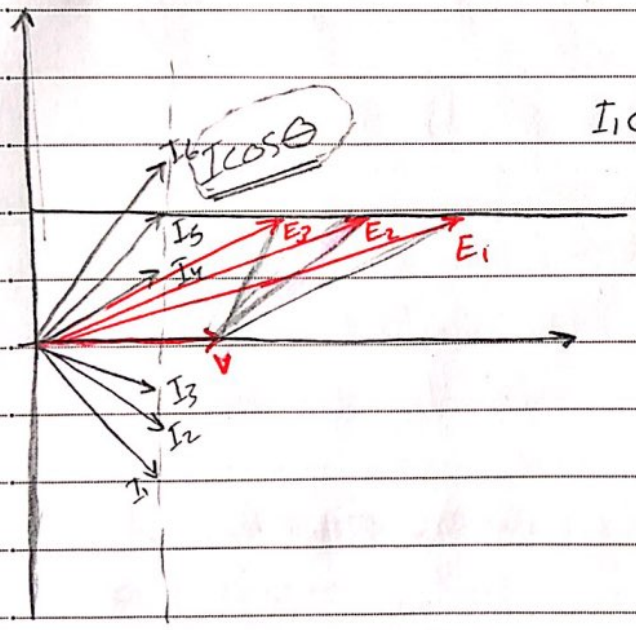 I6 ICOSθ
I1
I5
E3 E2
I4
E1
V
I3
I2
I1